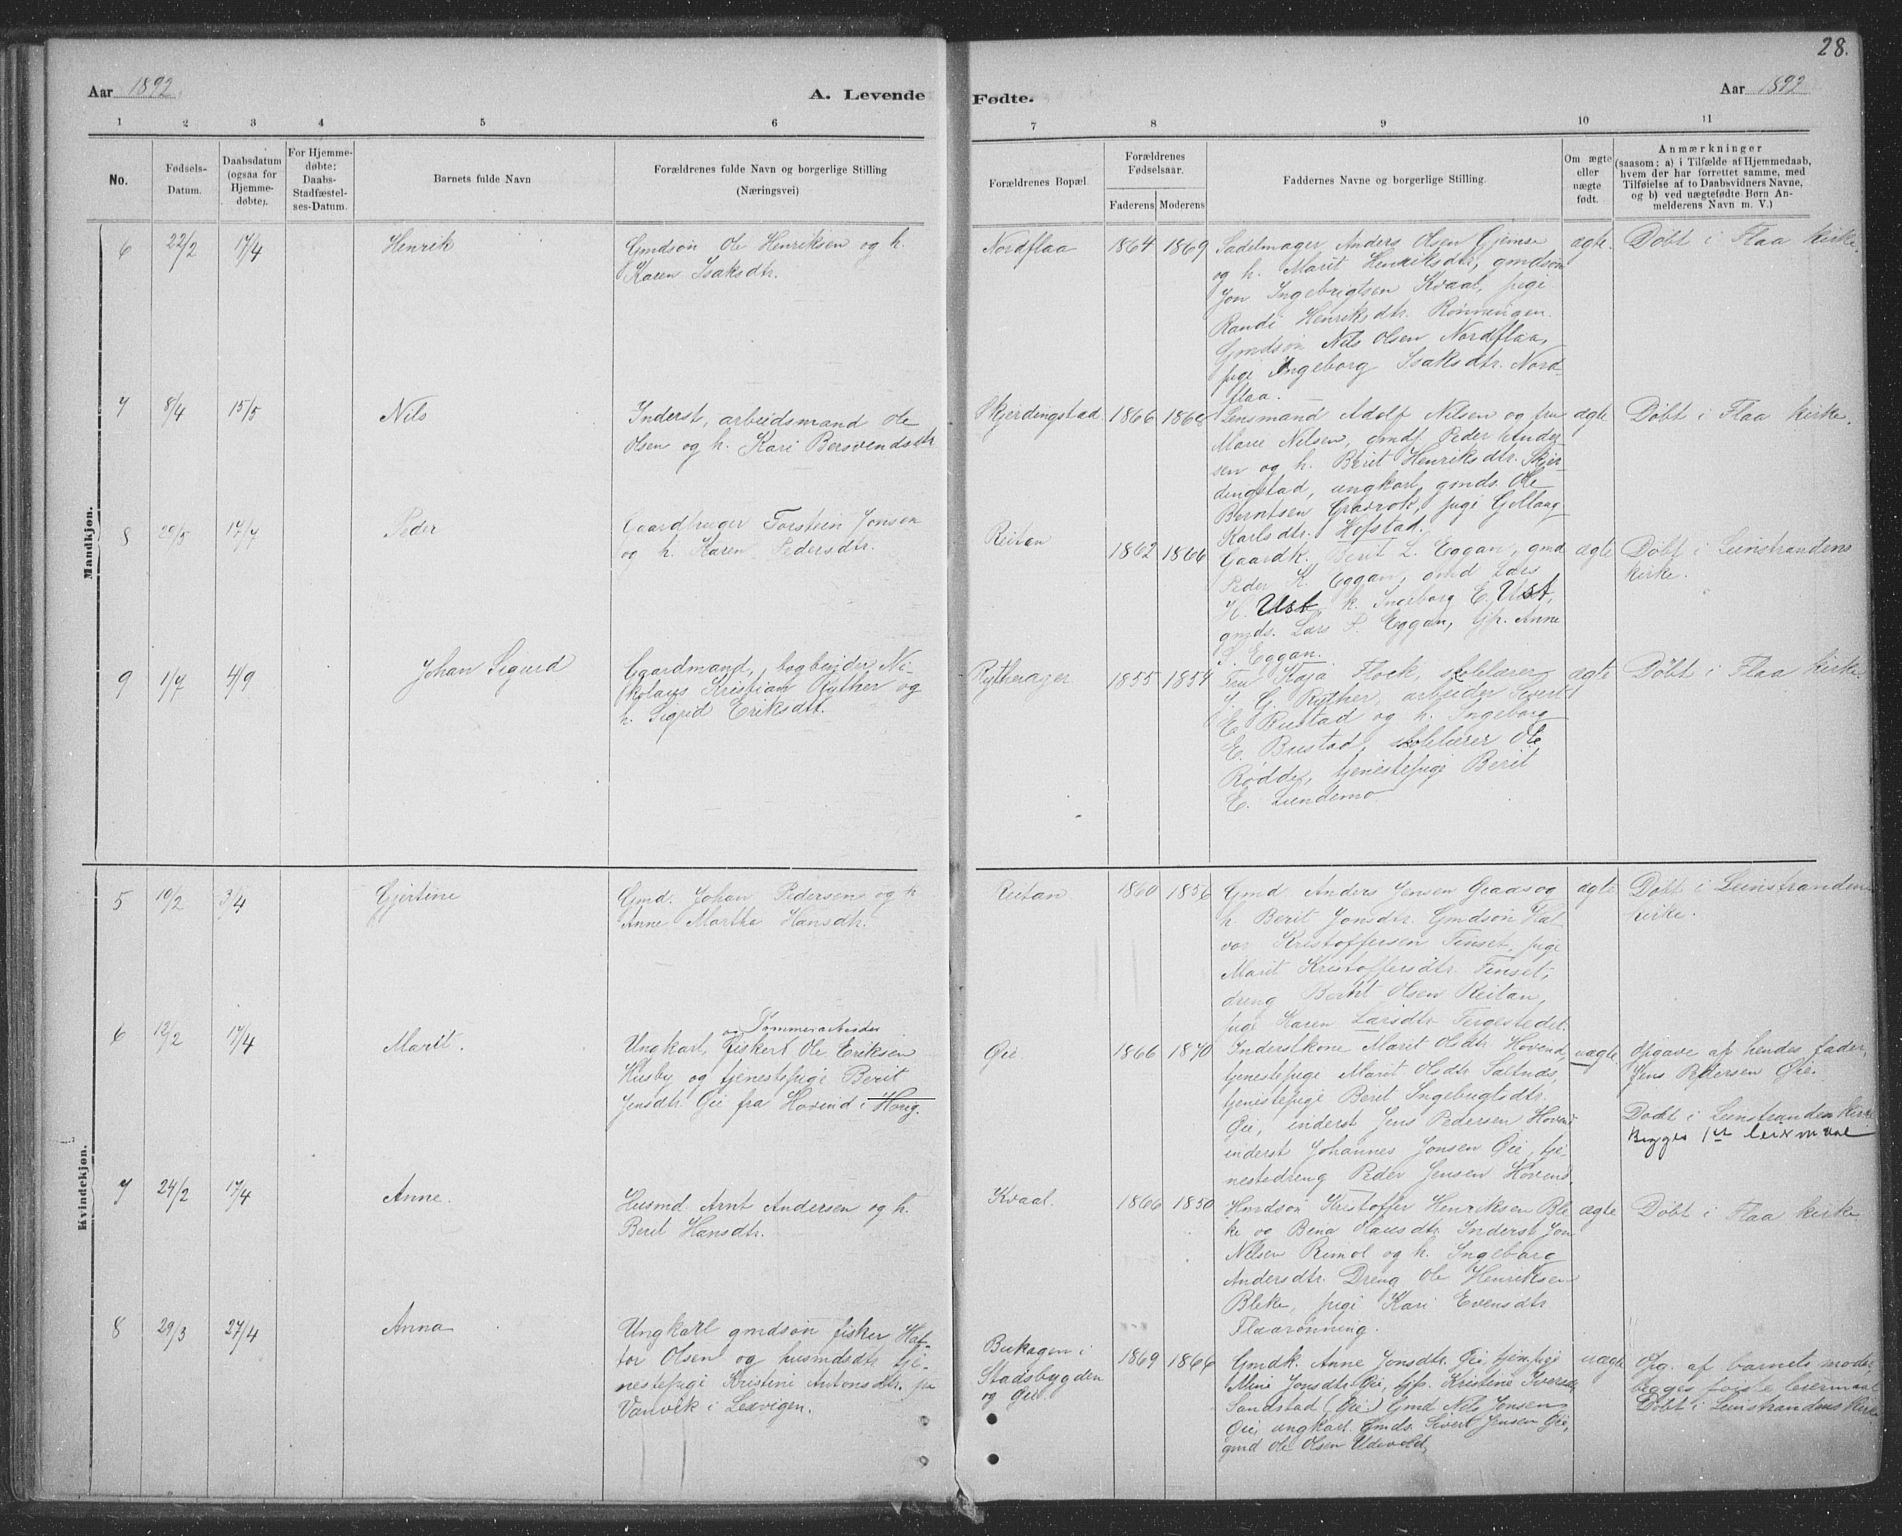 28.
Aar 1892.
A. Levende
Fødte.
Aar 1892
1 2 3 4 5 6 7 8 9 10 11
No.
Fødsels-
Datum.
Daabsdatum
(ogsaa for
Hjemme-
døbte).
For Hjemme-
døbte;
Daabs-
Stadfæstel-
ses-Datum.
Barnets fulde Navn
Forældrenes fulde Navn og borgerlige Stilling
(Næringsvei)
Forældrenes Bopæl.
Forældrenes
Fødselsaar.
Faderens Moderens
Faddernes Navne og borgerlige Stilling.
Om ægte
eller
nægte
født.
Anmærkninger
(saasom: a) i Tilfælde af Hjemmedaab,
hvem der har forrettet samme, med
Tilføielse af to Daabsvidners Navne,
og b) ved nægtefødte Børn An-
melderens Navn m. V.)
Mandkjøn.
6 22/2 17/4 Henrik
Gmdsøn Ole Henriksen og h.
Karen Isaksdtr.
Nordflaa 1864 1869
Sadelmager Anders Olsen Gjemse
og h. Marit Henriksdtr, gmdsøn
Jon Ingebrigtsen Kvaal, pige
Randi Henriksdtr. Rønningen.
Gmdsøn Nils Olsen Nordflaa,
pige Ingeborg Isaksdtr. Nord-
flaa.
ægte. Døbt i Flaa kirke.
7 8/4 15/5 Nils
Inderst, arbeidsmand Ole
Olsen og h. Kari Bersvendsdtr
Skjerdingstad 1866 1868
Lensmand Adolf Nilsen og fru
Marie Nilsen, gmdf Peder Ander-
sen og h. Berit Henriksdtr. Skjer-
dingstad, ungkarl gmds. Ole
Berntsen Gravrok, pige Gollaug
Karlsdtr. Hofstad.
ægte Døbt i Flaa kirke.
8 29/5 17/7 Peder
Gaardbruger Torstein Jonsen
og h. Karen Pedersdtr.
Reitan 1862 1866
Gaardk. Berit L. Eggan, gmd
Peder K. Eggan, gmd Lars
H. Ust, k. Ingeborg E. Ust,
gmds. Lars P. Eggan, tjp. Anne
S. Eggan.
ægte Døbt i Leinstrandens
kirke.
9 1/7 4/9 Johan Sigurd
Gaardmand, bogbinder Ni-
kolaus Kristian Ryther og
h. Sigrid Eriksdtr.
Rytherager 1855 1854
Fru Kaja Flock, skolelærer
J. G. Ryther, arbeider Sivert
E. Bustad og h. Ingeborg
E. Bustad, skolelærer Ole
Rødde, tjenestepige Berit
E. Lundemo
ægte Døbt i Flaa kirke
Kvindekjøn.
5 19/2 3/4 Gjertine
Gmd. Johan Pedersen og h
Anne Martha Hansdtr.
Reitan 1860 1856
Gmd Anders Jensen Graas og
h Berit Jonsdtr. Gmdsøn Hal
vor Kristoffersen Tinset, pige
Marit Kristoffersdtr. Tinset,
dreng Bernt Olsen Reitan,
pige Karen Larsdtr
ægte Døbt i Leinstranden
kirke.
6 12/2 17/4 Marit.
og Tømmerarbeider
Ungkarl, fisker Ole Eriksen
Husby og tjenestepige Berit
Jensdtr. Øie fra Hovend i Horg.
Øie. 1866 1870
Inderstkone Marit Olsdtr Hovend,
tjenestepige Marit Olsdtr Saltnes,
tjenestepige Berit Ingebrigtsdtr.
Øie, inderst Jens Pedersen Hovend
inderst Johannes Jonsen Øie, tje-
nestedreng Peder Jensen Hovend.
uægte Opgave af hendes fader,
Jens Pedersen Øie.
Døbt i Leinstrandens kirke
Begges 1st leiermaal
7 24/2 17/4 Anne.
Husmd. Arnt Andersen og h.
Berit Hansdtr.
Kvaal. 1866 1850
Hmdsøn Kristoffer Henriksen Ble-
ke og Bena Hansdtr. Inderst Jon
Nilsen Rimol og h. Ingeborg
Andersdtr. Dreng Ole Henriksen
Bleke, pige Kari Evensdtr
Flaarønning.
ægte Døbt i Flaa kirke
8 29/3 27/4 Anna
Ungkarl gmdsøn fisker Haf-
tor Olsen og husmdsdtr. tje-
nestepige Kristine Antonsdtr. fra
Vanvik i Lexvigen.
i
Stadsbygden
og Øie. 1869 1866
Gmdk. Anne Jonsdtr. Øie, tjen.pige
Mine Jonsdtr. Øie, tjp. Kristine Iversdtr
Sandstad (Øie.) Gmd Nils Jensen
Øie, ungkarl. Gmds. Sivert Jensen Øie,
gmd Ole Olsen
uægte Opg. af barnets moder,
begges første leiermaal
Døbt i Leinstrandens kirke